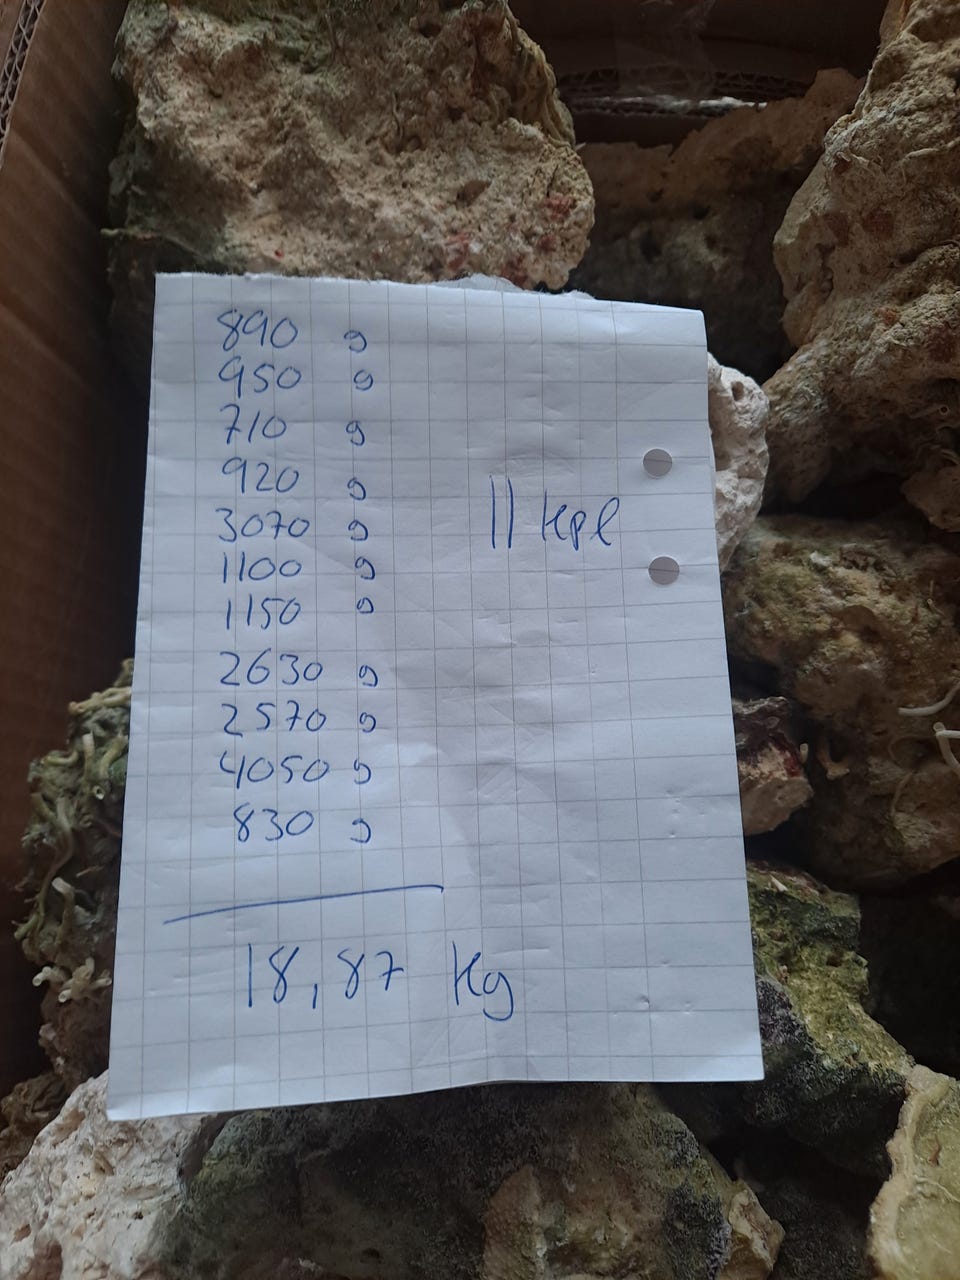 890 g
950 g
710 g
920 g
3070 g
1100 g
1150 g
2630 g
2570 g
4050 g
830 g
11 kpl
18,87 kg